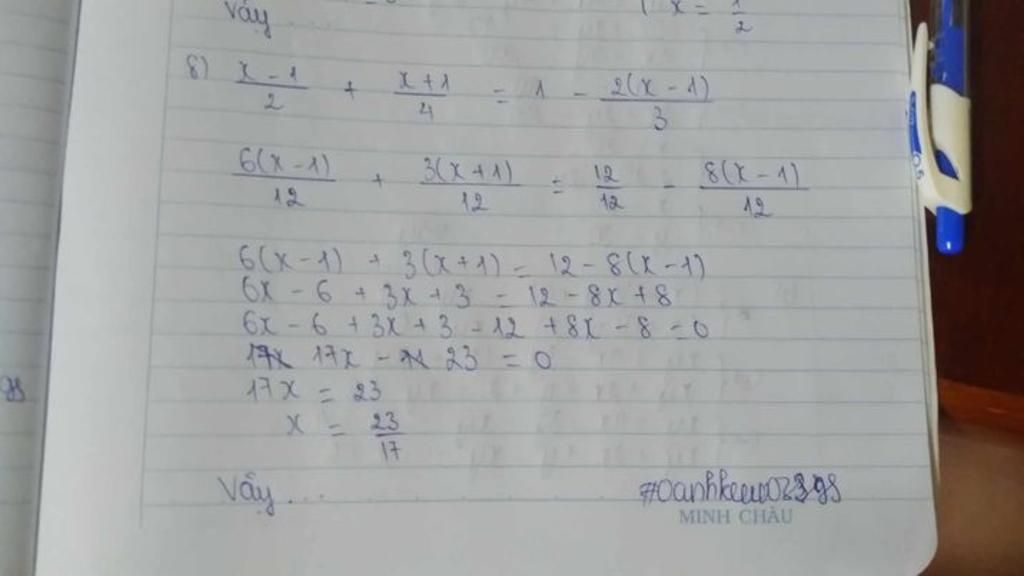 Vậy ....
x = 1/2
8) (x - 1)/2 + (x + 1)/4 = 1 - 2(x - 1)/3
6(x - 1)/12 + 3(x + 1)/12 = 12/12 - 8(x - 1)/12
6(x - 1) + 3(x + 1) = 12 - 8(x - 1)
6x - 6 + 3x + 3 = 12 - 8x + 8
6x - 6 + 3x + 3 - 12 + 8x - 8 = 0
17x - 23 = 0
17x = 23
x = 23/17
Vậy ....
MINH CHÂU